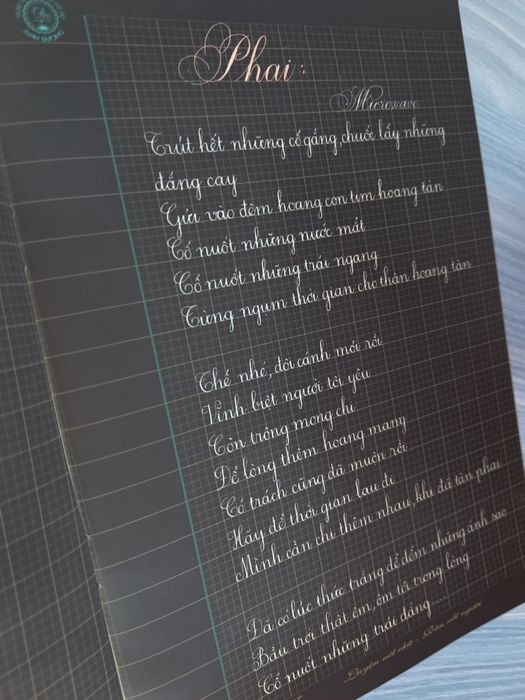 Phai:
Microwave
Trút hết những cố gắng, chuốc lấy những
đắng cay
Gửi vào đêm hoang con tim hoang tàn
Cố nuốt những nước mắt
Cố nuốt những trái ngang
Từng ngụm thời gian cho thân hoang tàn
Thế nhé, đôi cánh mới rồi
Vĩnh biệt người tôi yêu
Còn trông mong chi
Để lòng thêm hoang mang
Có trách cũng đã muộn rồi
Hãy để thời gian lau đi
Mình cần chi thêm nhau, khi đã tàn phai
Đã có lúc thức trắng để đếm những ánh sao
Bầu trời thật êm, ôm tôi trong lòng
Cố nuốt những trái đắng....
Luyện nét chữ - Rèn nết người